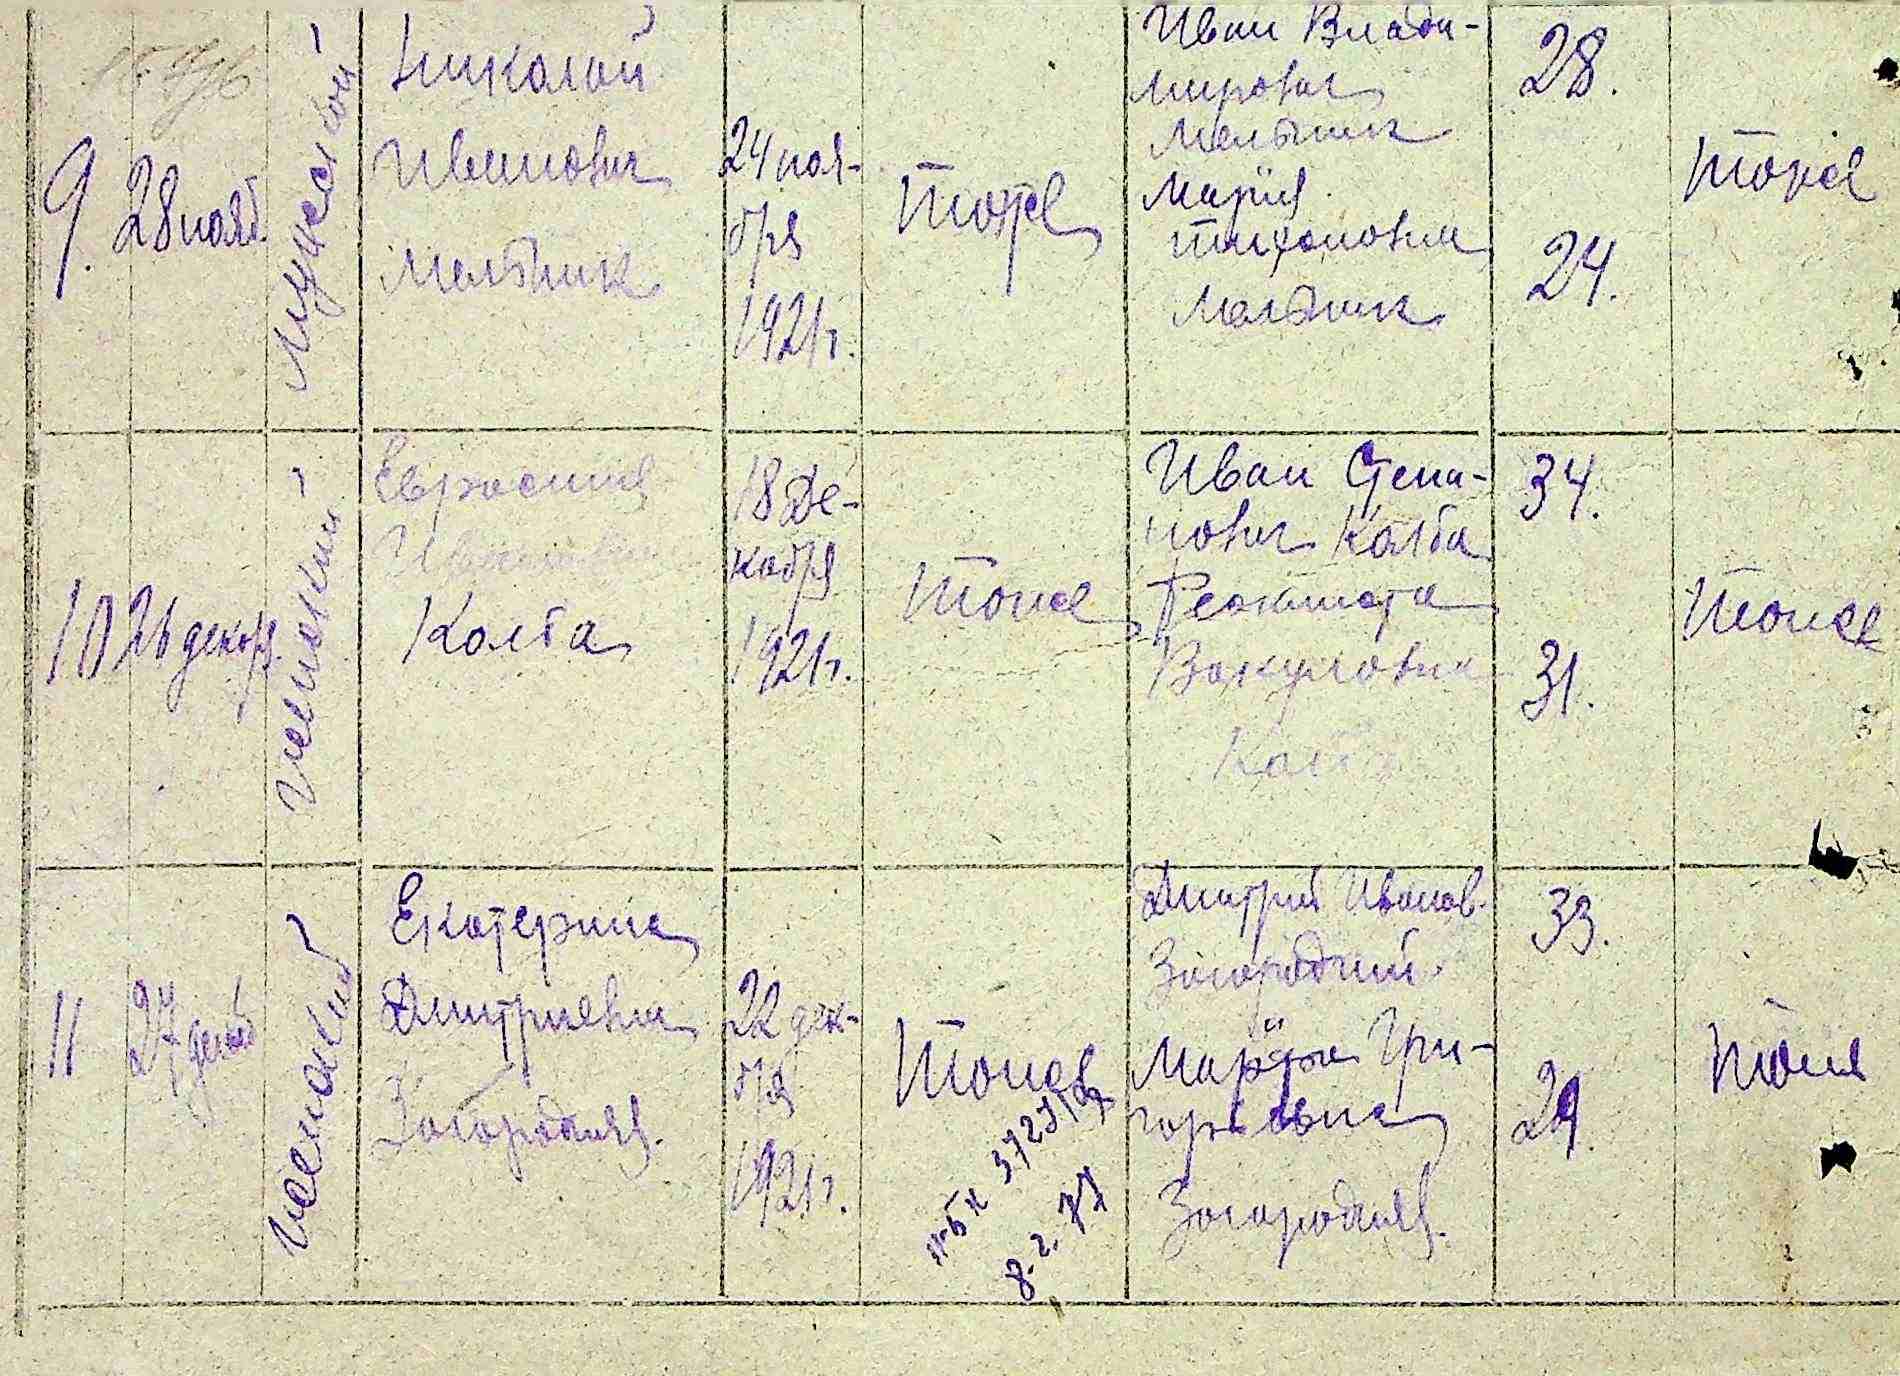 9.
28 нояб.
мужской
Николай
Иванович
Мельник
24 ноя-
бря
1921 г.
тоже
Иван Влади-
мирович
Мельник
Мария
Тихоновна
Мельник
28.
24.
тоже
10
26 декабр.
женский
Евросиния
Ивановна
Колба
18 де-
кабря
1921 г.
тоже
Иван Степа-
нович Колба
Феоктиста
Вакуловна
Колба
34.
31.
тоже
11
27 декаб
женский
Екатерина
Дмитриевна
Загородняя.
22 дек-
бря
1921 г.
тоже
Дмитрий Иванов.
Загородний.
Марфа Гри-
горьевна
Загородняя.
33.
29.
тоже